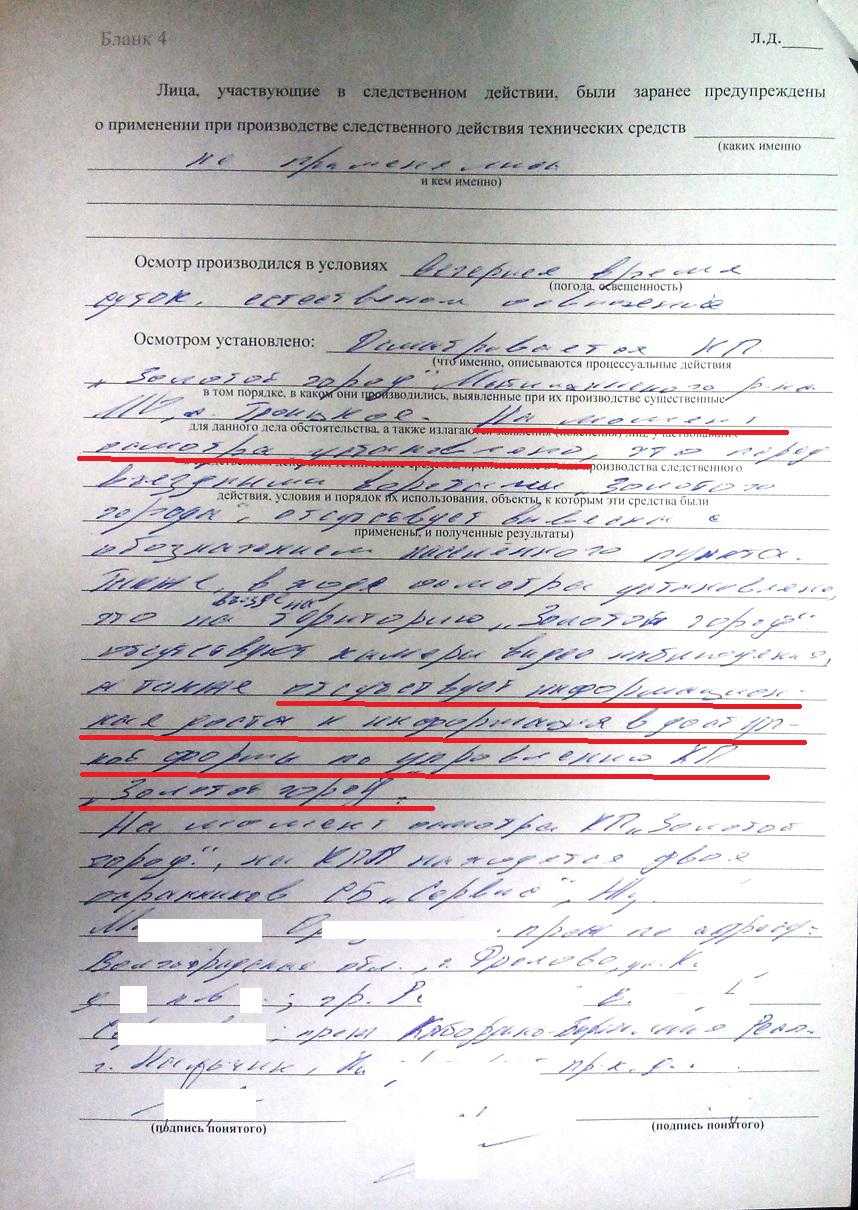 Бланк 4
Л.Д.____
Лица, участвующие в следственном действии, были заранее предупреждены
о применении при производстве следственного действия технических средств
(каких именно
не применялись
и кем именно)
Осмотр производился в условиях вечернее время
(погода, освещенность)
суток, естественом освещение
Осмотром установлено: Осматривается КП
(что именно, описываются процессуальные действия
„Золотой город" Мытищинского р-на
в том порядке, в каком они производились, выявленные при их производстве существенные
МО, д. Троицкое. На момент
для данного дела обстоятельства, а также излагаются заявления (пояснения) лиц, участвовавших
осмотра установлено, что перед
производства следственного
въездными воротами „Золотого
действия, условия и порядок их использования, объекты, к которым эти средства были
города", отсутствует вывески с
применены, и полученные результаты)
обозначением населенного пункта.
Также, в ходе осмотра установлено,
въезде на
что на территорию „Золотой город"
отсутствуют камеры видео наблюдения,
а также отсутствует информацион-
ная доска и информация в доступ-
ной форме по управлению КП
„Золотой город".
На момент осмотра КП „Золотой
город", на КПП находятся двое
охранников СБ „Сервис",
прож по адресу:
Волгоградская обл., г. Фролово, ул. К.
кв ; гр. Р.
прож Кабардино-Балкария Респ.
г. Нальчик,
(подпись понятого)
(подпись понятого)